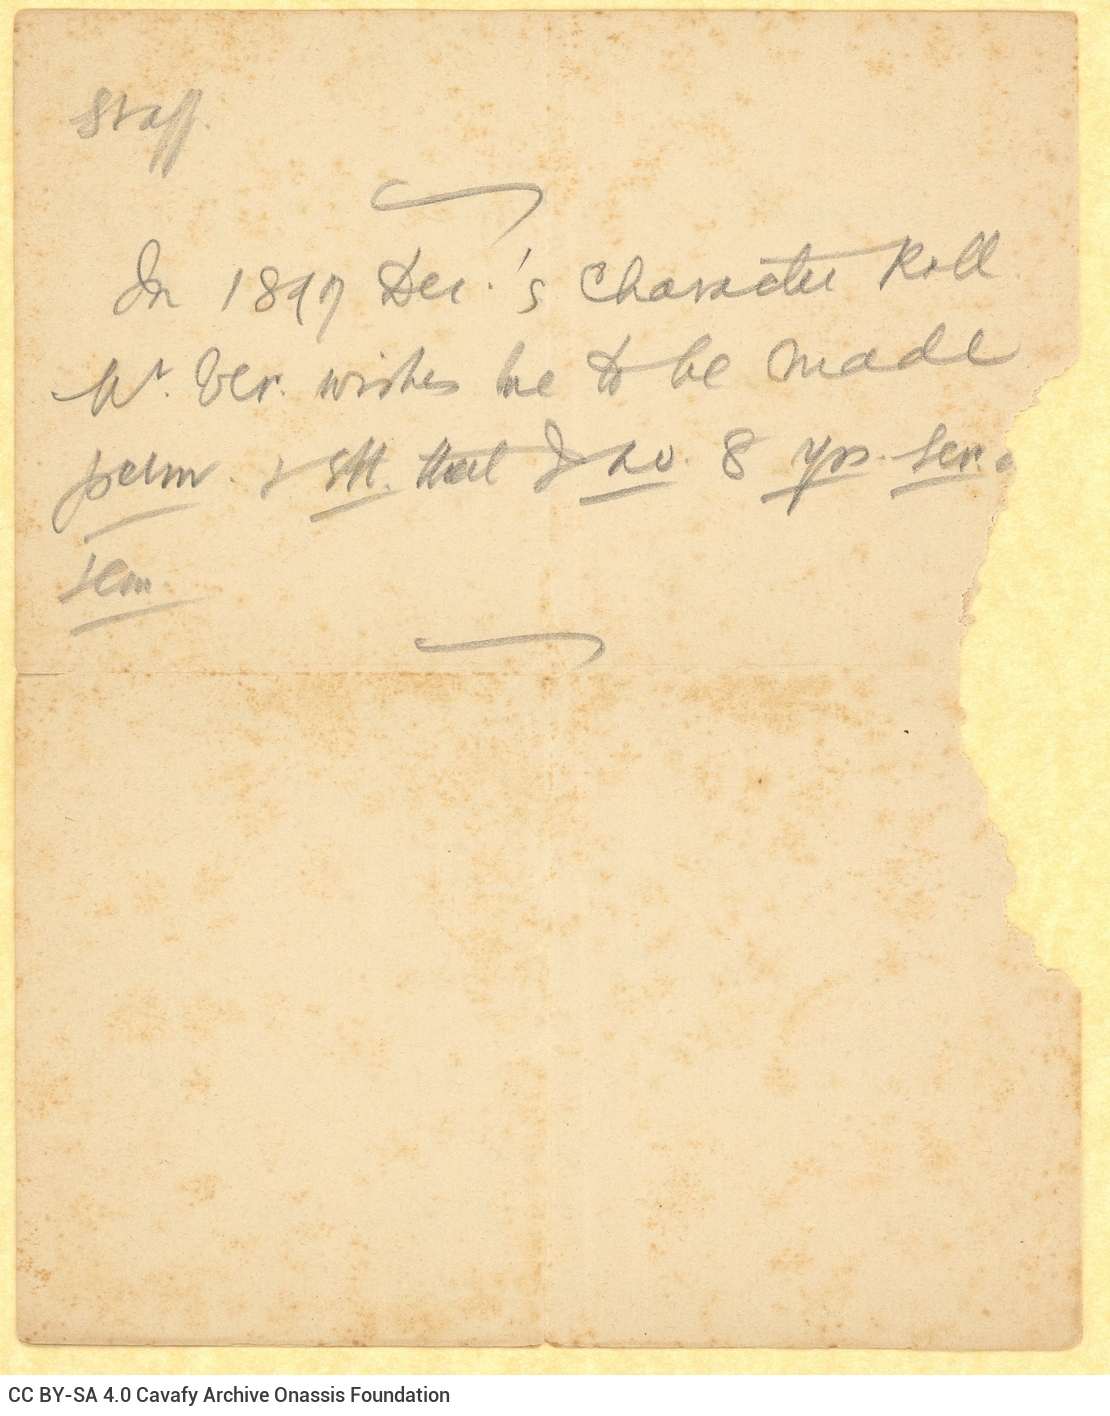 Staff.
In 1897 Dec.'s Character Roll
Mr. Ver. wishes me to be made
perm. & stt. that I hv. 8 yrs. ser. a
tem.
CC BY-SA 4.0 Cavafy Archive Onassis Foundation